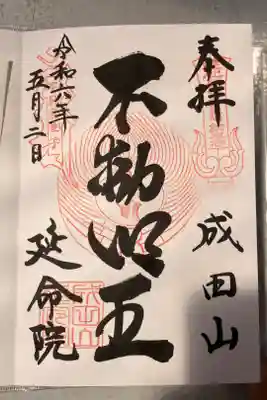 奉拝
成田山
不動明王
延命院
令和六年
五月二日